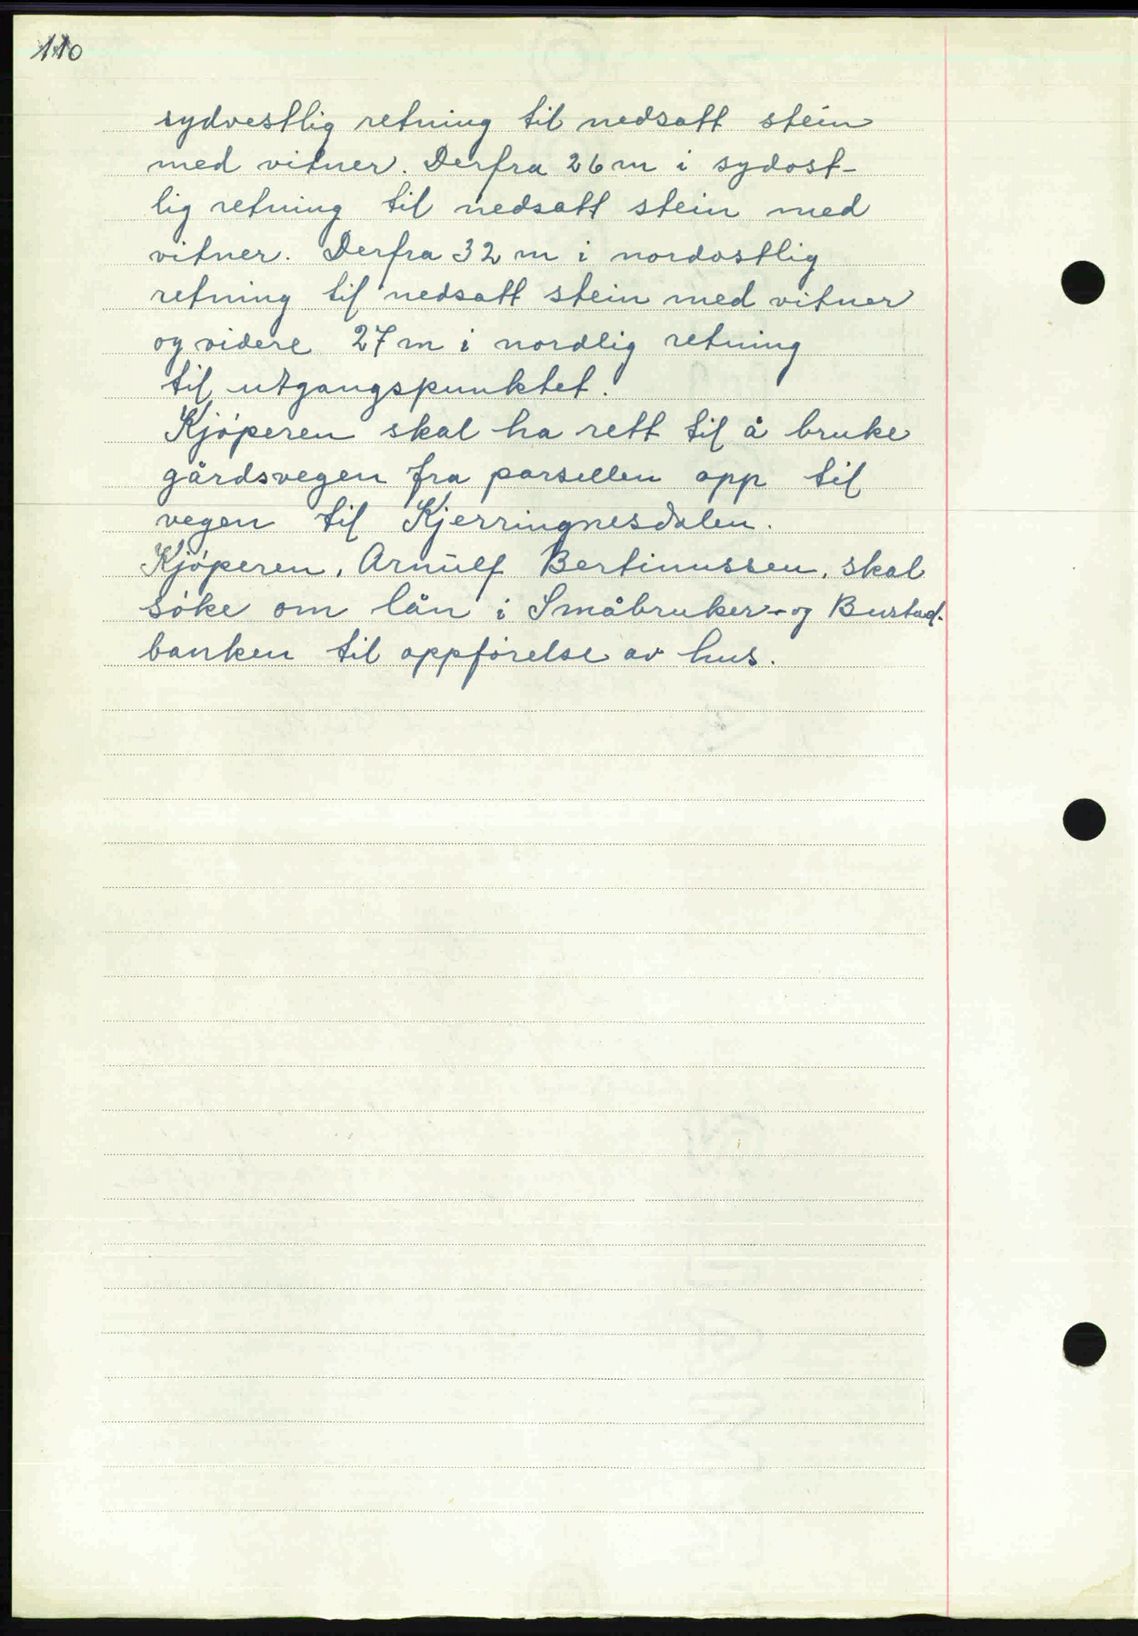 110
sydvestlig retning til nedsatt stein
med vitner. Derfra 26 m i sydost-
lig retning til nedsatt stein med
vitner. Derfra 32 m i nordostlig
retning til nedsatt stein med vitner
og videre 27 m i nordlig retning
til utgangspunktet.
Kjøperen skal ha rett til å bruke
gårdsvegen fra parsellen opp til
vegen til Kjerringnesdalen.
Kjøperen, Arnulf Bertinussen, skal
søke om lån i Småbruker- og Bustad-
banken til oppførelse av hus.